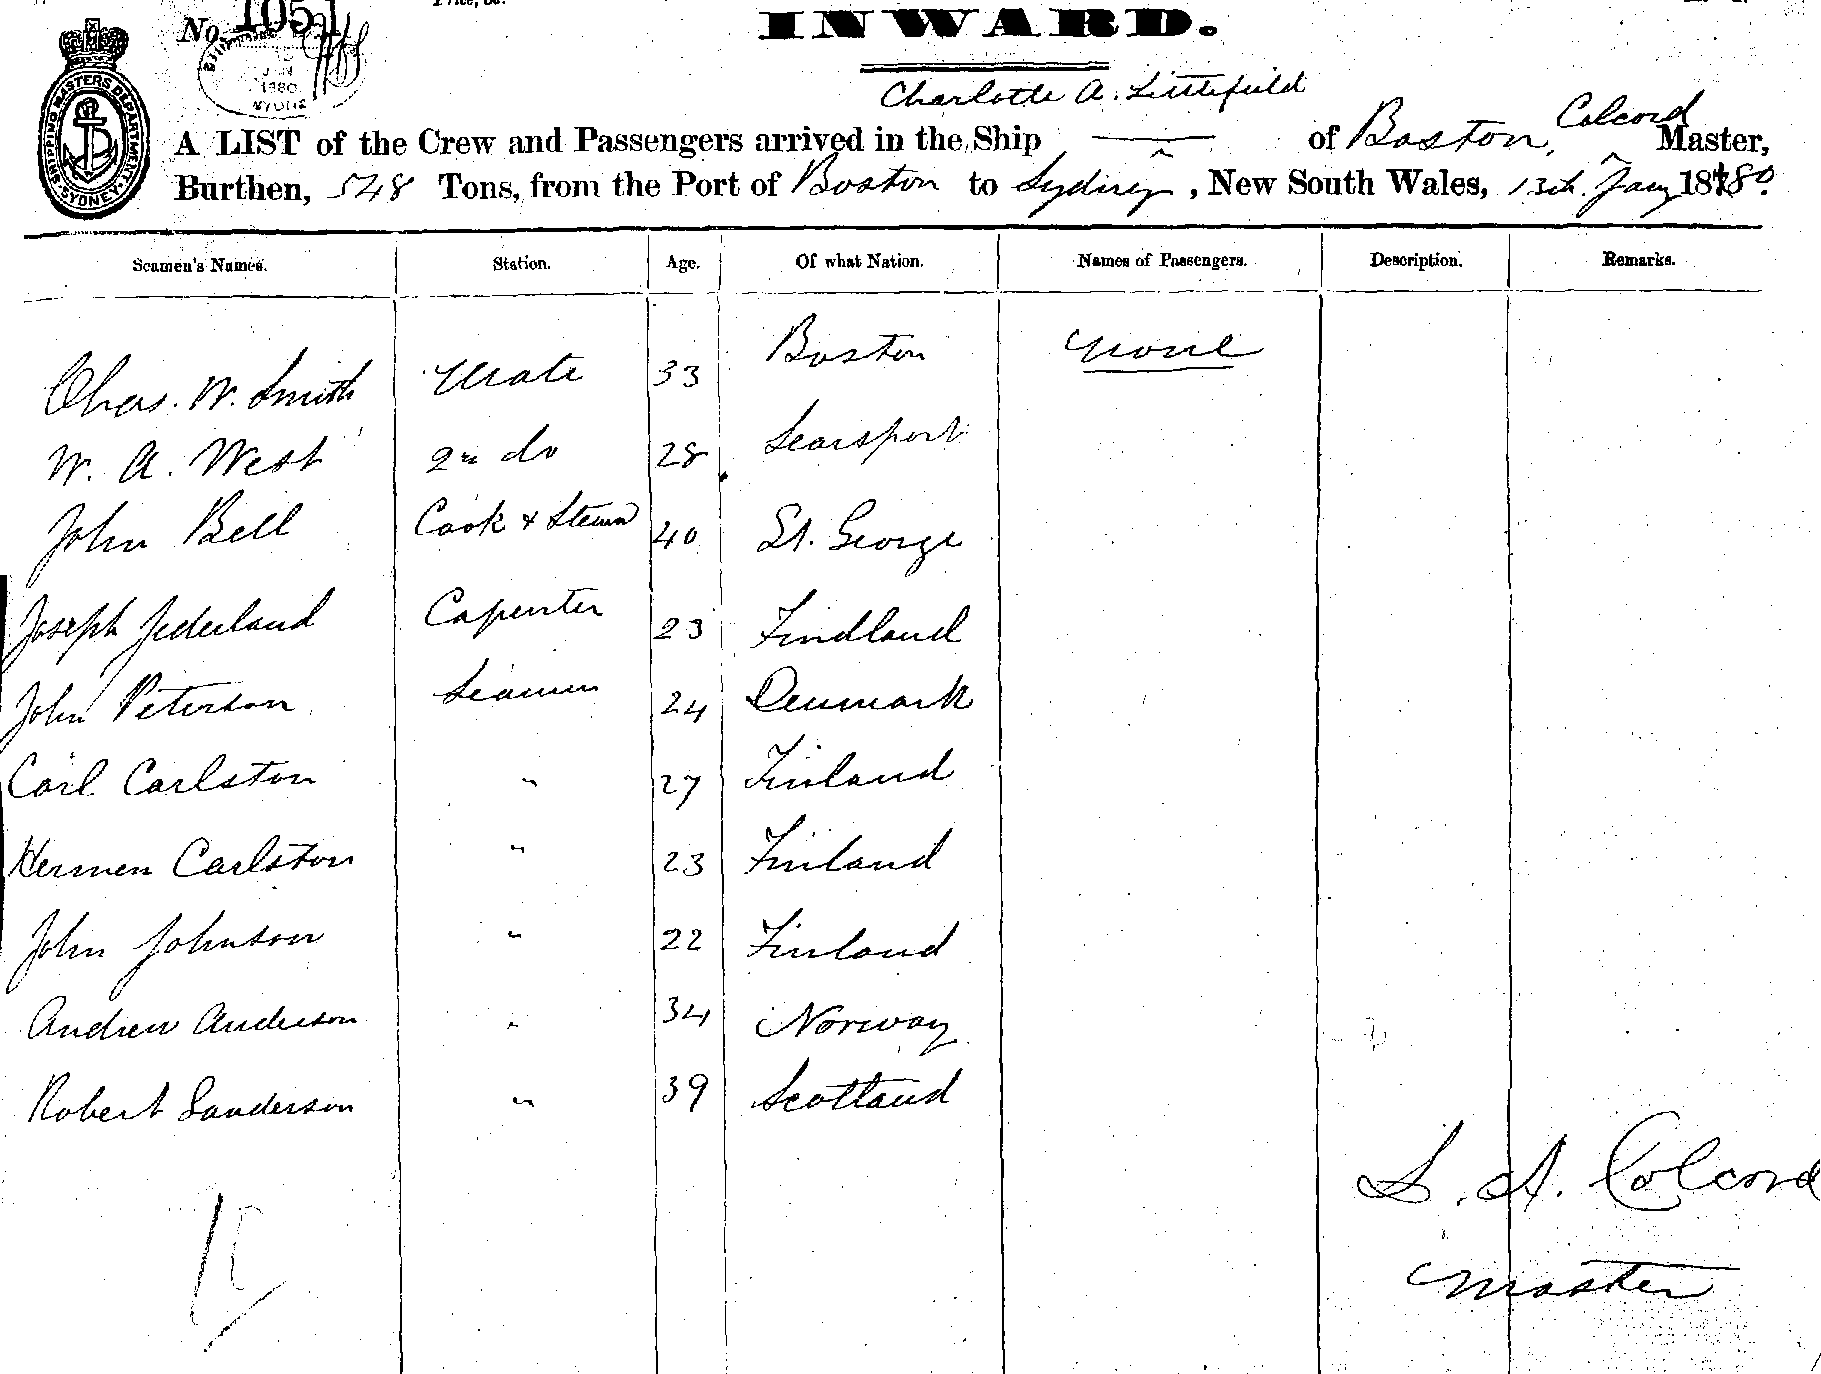 No. 1051
INWARD.
SHIPPING MASTERS DEPARTMENT SYDNEY
JAN
1880
Charlotte A. Littlefield
A LIST of the Crew and Passengers arrived in the Ship — of Boston, Colcord Master,
Burthen, 548 Tons, from the Port of Boston to Sydney, New South Wales, 13th. Jany 1880.
Seamen's Names. Station. Age. Of what Nation. Names of Passengers. Description. Remarks.
Chas. W. Smith Mate 33 Boston None
W. A. West 2nd do 28 Searsport
John Bell Cook & Stewd 40 St. George
Joseph Jederland Capenter 23 Findland
John Peterson Seamen 24 Denmark
Carl Carlston " 27 Finland
Hermen Carlston " 23 Finland
John Johnson " 22 Finland
Andrew Anderson " 34 Norway
Robert Sanderson " 39 Scotland
S. A. Colcord
Master